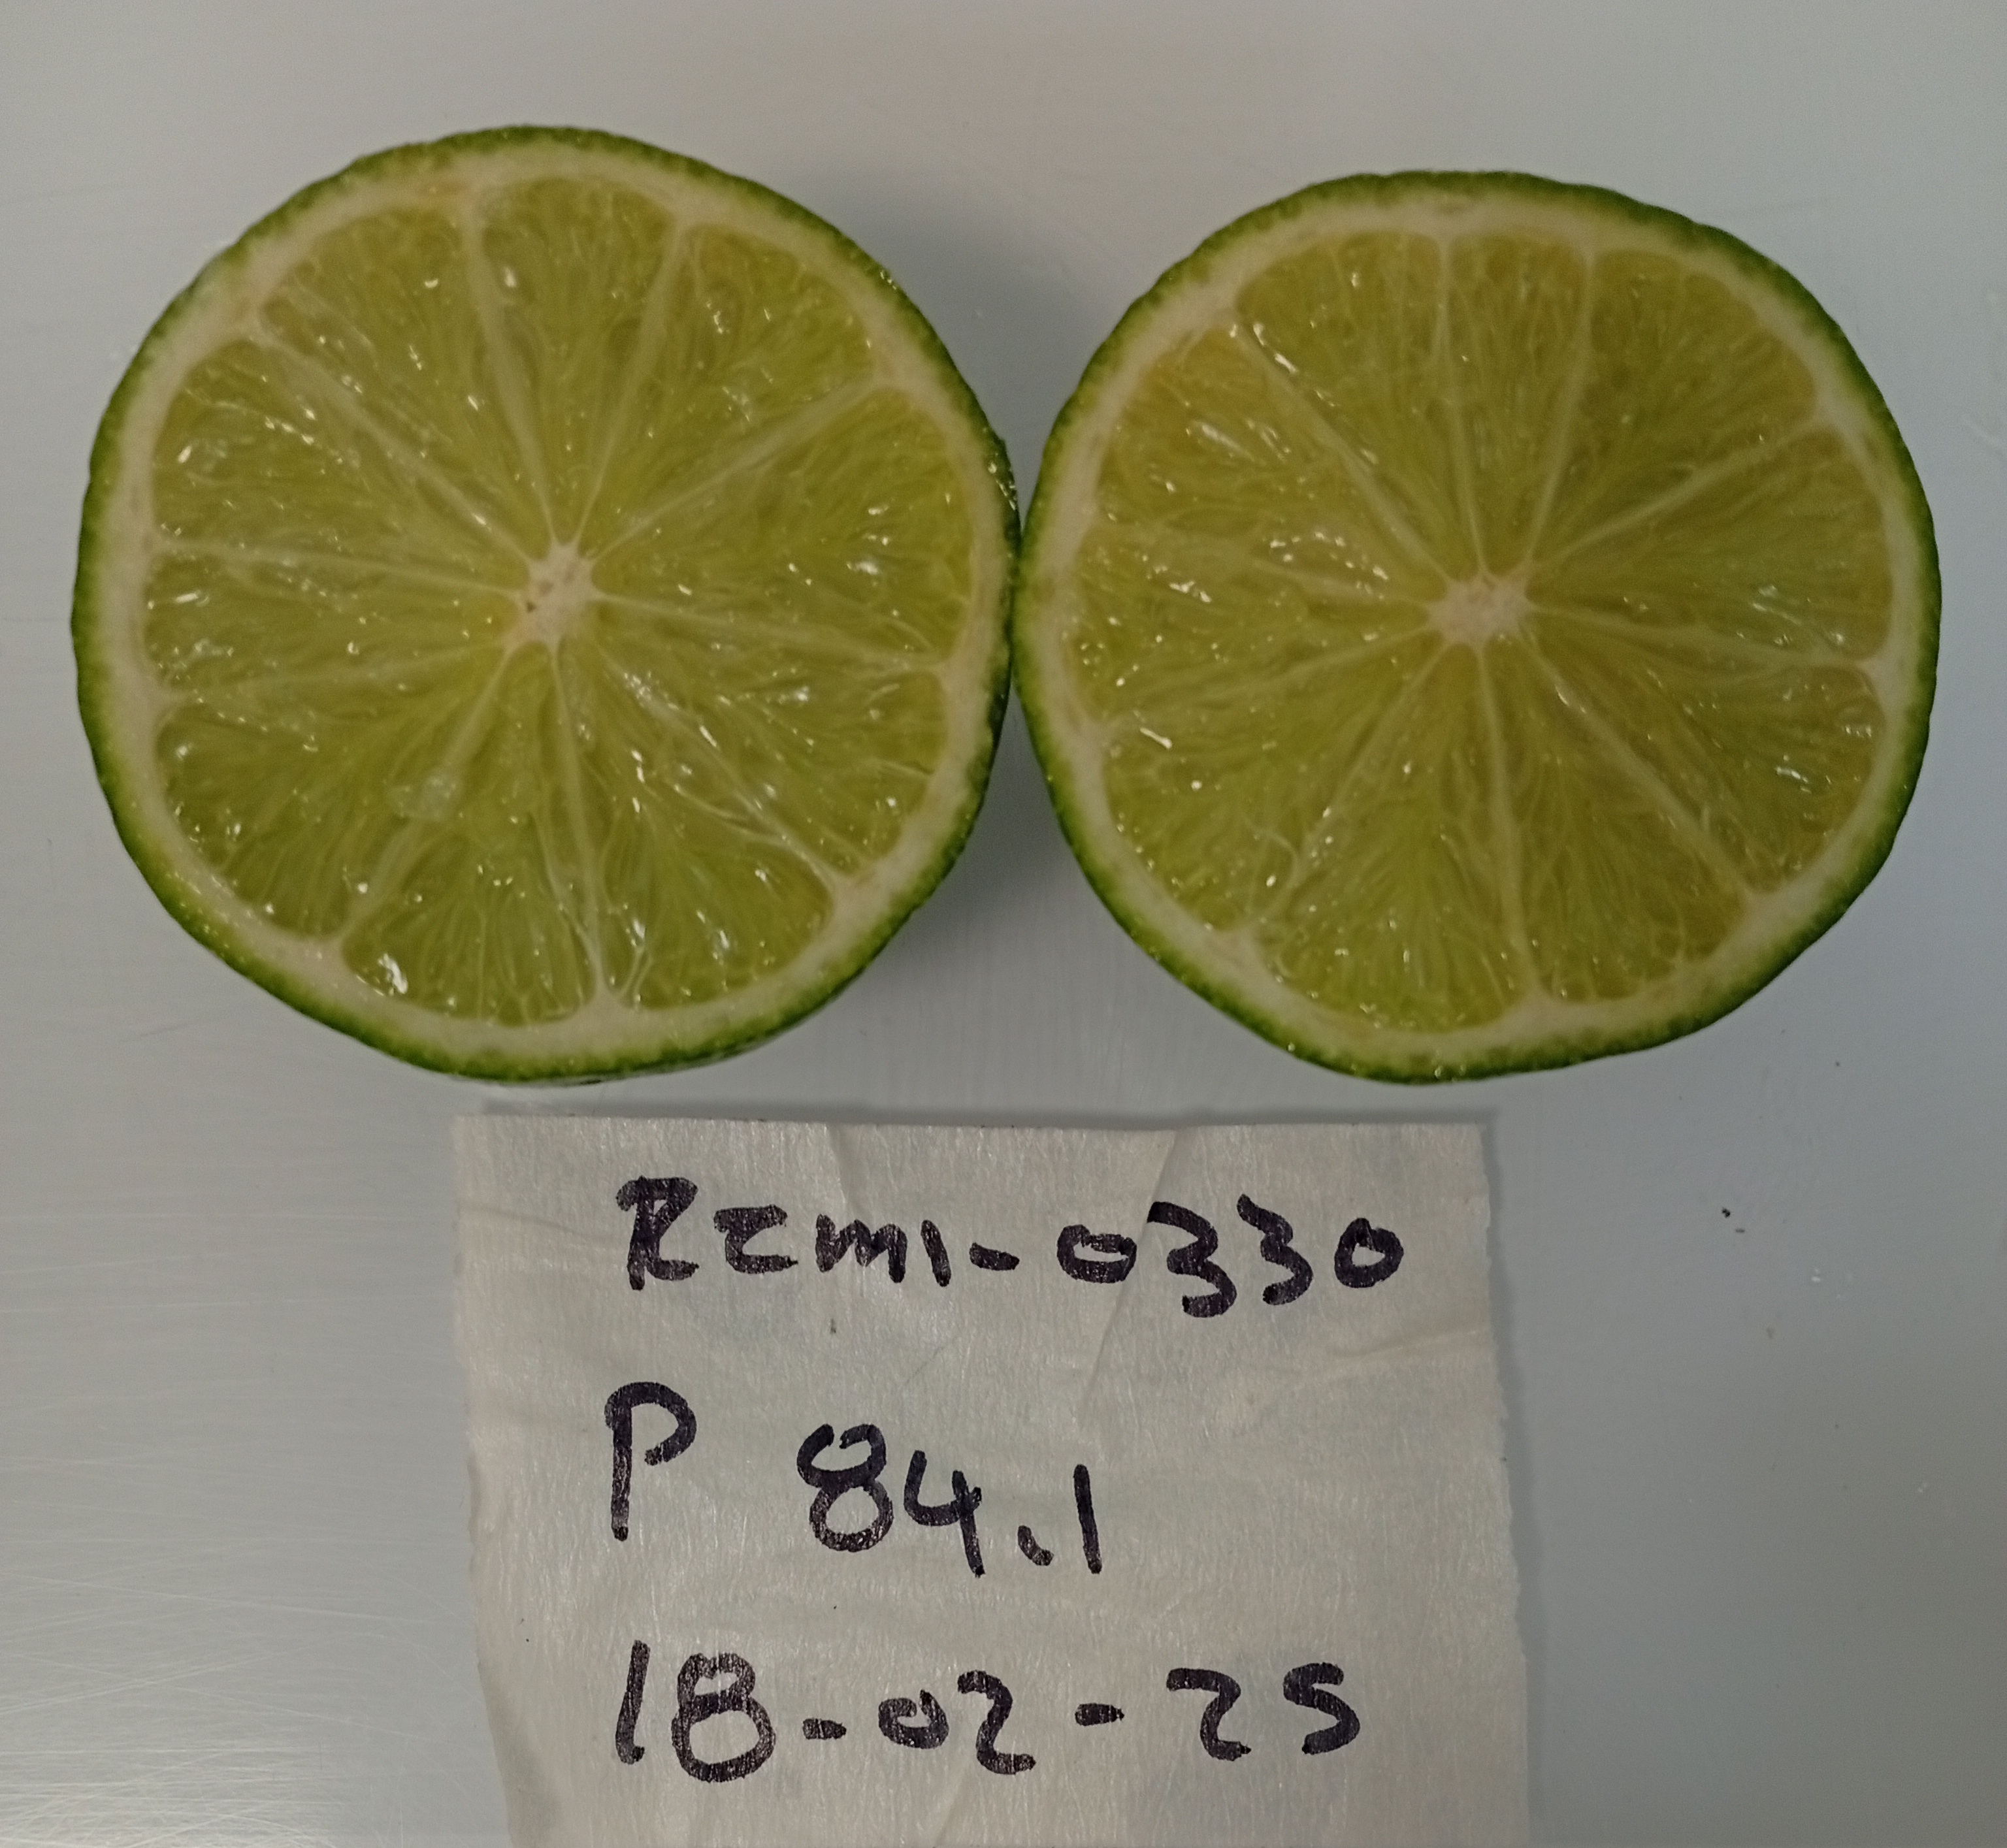 RZM1-0330
P 84.1
18-02-25